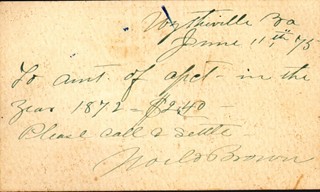 Wytheville Va
June 11th, 75
To amt. of apct - in the
Year 1872 - $2.40 -
Please call & settle -
Brown